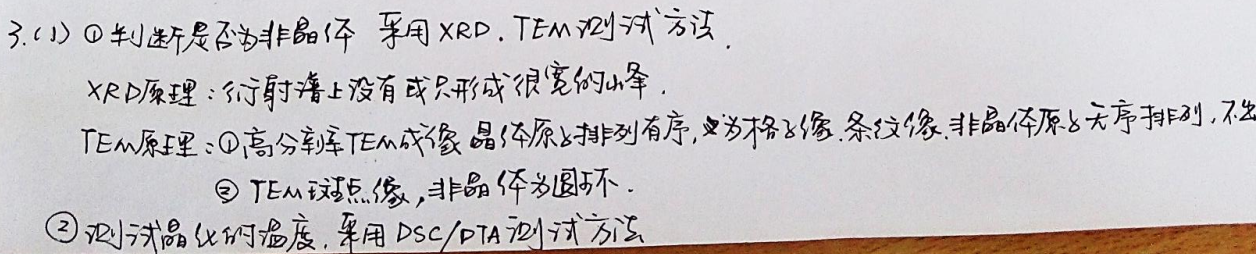 3.(1) ①判断是否为非晶体 采用XRD.TEM测试方法.
XRD原理:衍射谱上没有或只形成很宽的小峰.
TEM原理:①高分辨率TEM成像 晶体原子排列有序,为格子像.条纹像.非晶体原子无序排列,不出
② TEM斑点像,非晶体为圆环.
②测试晶化的温度.采用DSC/DTA测试方法